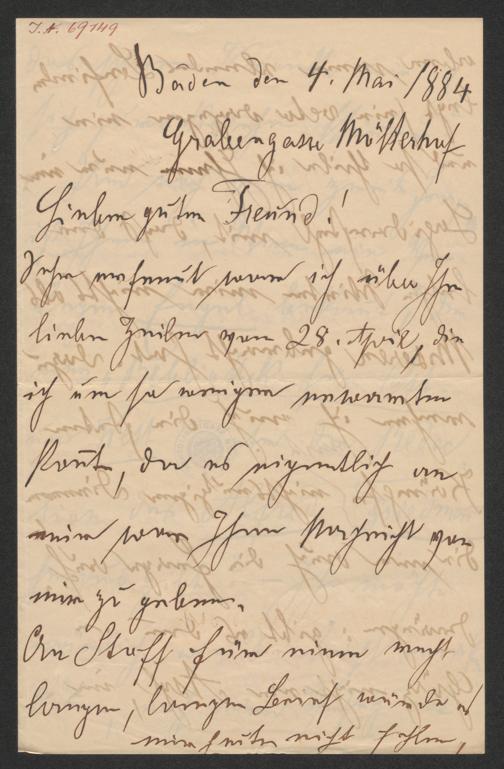 I.N. 69749
Baden den 4. Mai 1884
Grabengasse Möllerhof
Lieber guter Freund!
Sehr erfreut war ich über Ihre
lieben Zeilen vom 28. April, die
ich um so weniger erwarten
konnte, da es eigentlich an
mir war Ihnen Nachricht von
mir zu geben.
An Stoff für einen recht
langen, langen Brief würde es
mir heute nicht fehlen,